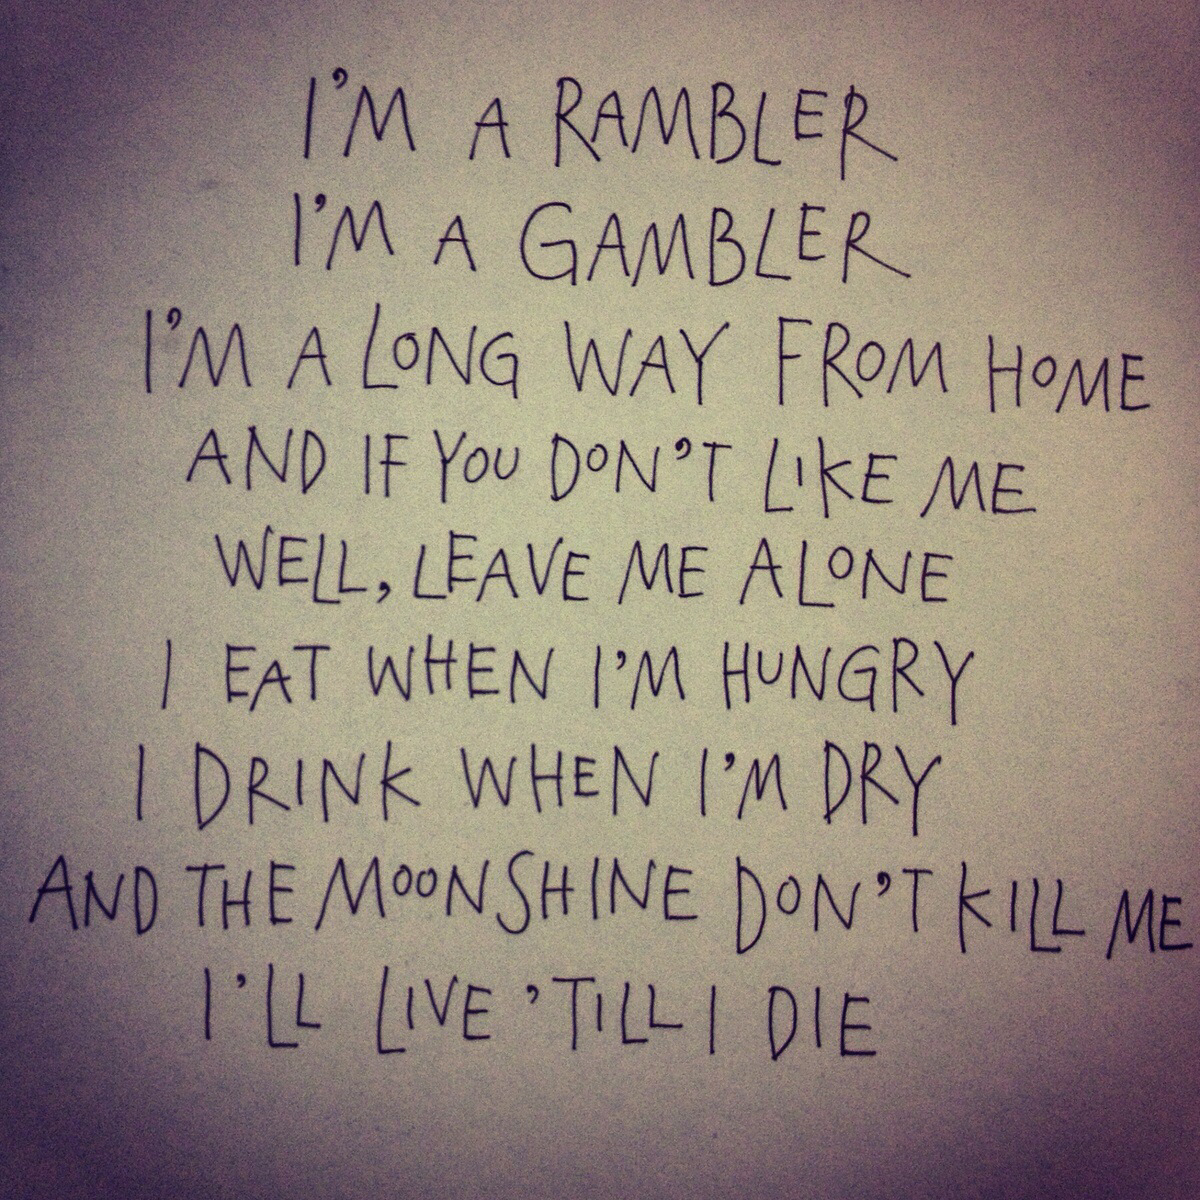 I'M A RAMBLER
I'M A GAMBLER
I'M A LONG WAY FROM HOME
AND IF YOU DON'T LIKE ME
WELL, LEAVE ME ALONE
I EAT WHEN I'M HUNGRY
I DRINK WHEN I'M DRY
AND THE MOONSHINE DON'T KILL ME
I'LL LIVE 'TILL I DIE